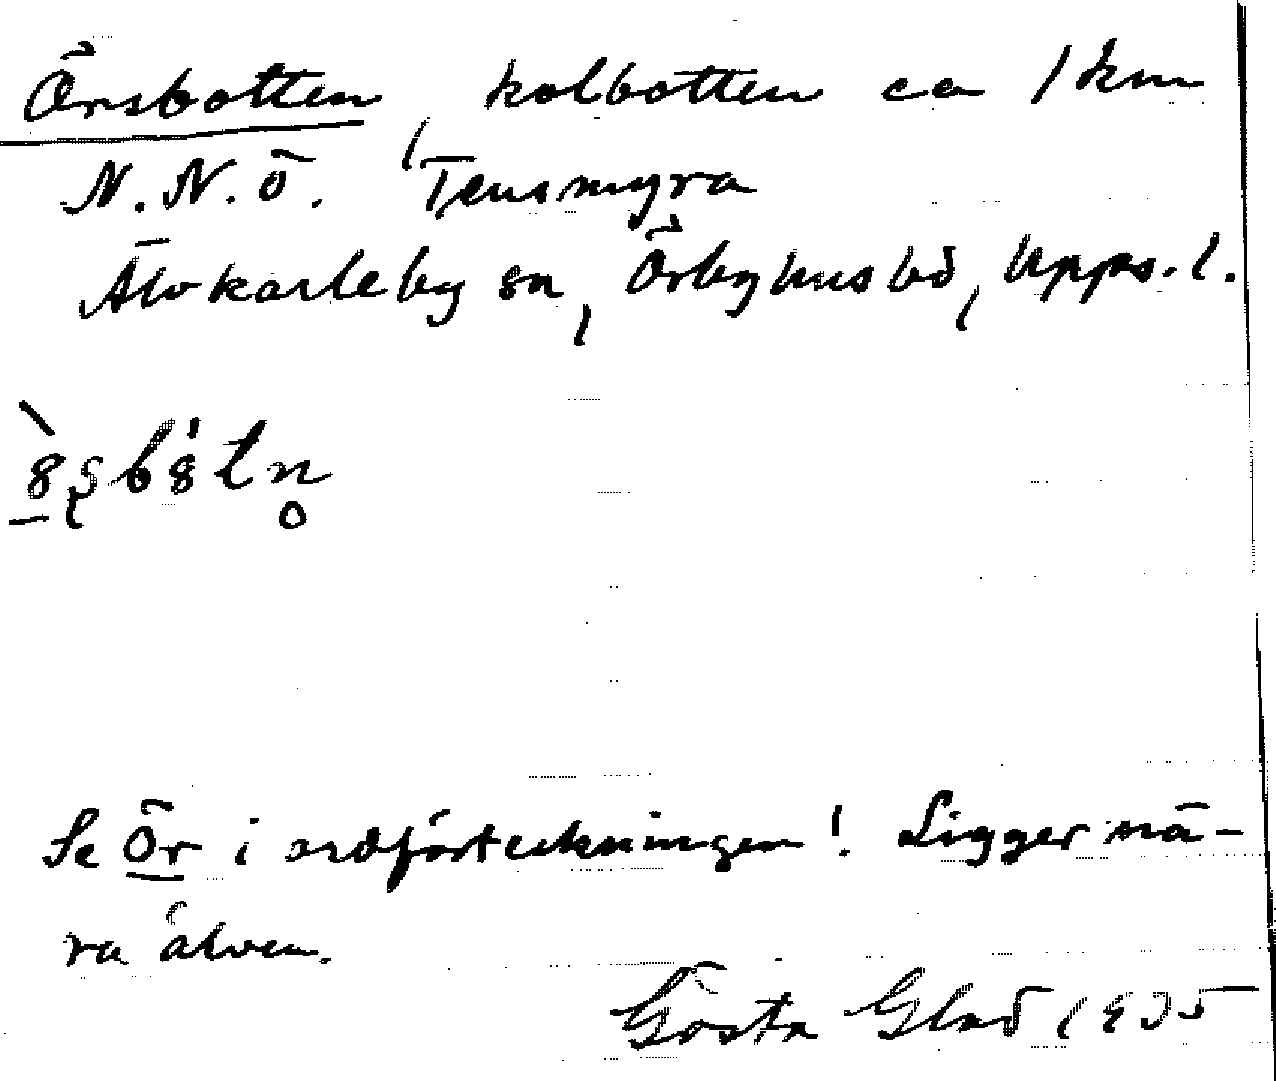 Örsbotten, kolbotten ca 1 km
N.N.Ö. Tensmyra
Älvkarleby sn, Örbyhus hd, Upps. l.
Se Ör i ordförteckningen! Ligger nä-
ra älven.
Gösta Glad 1935